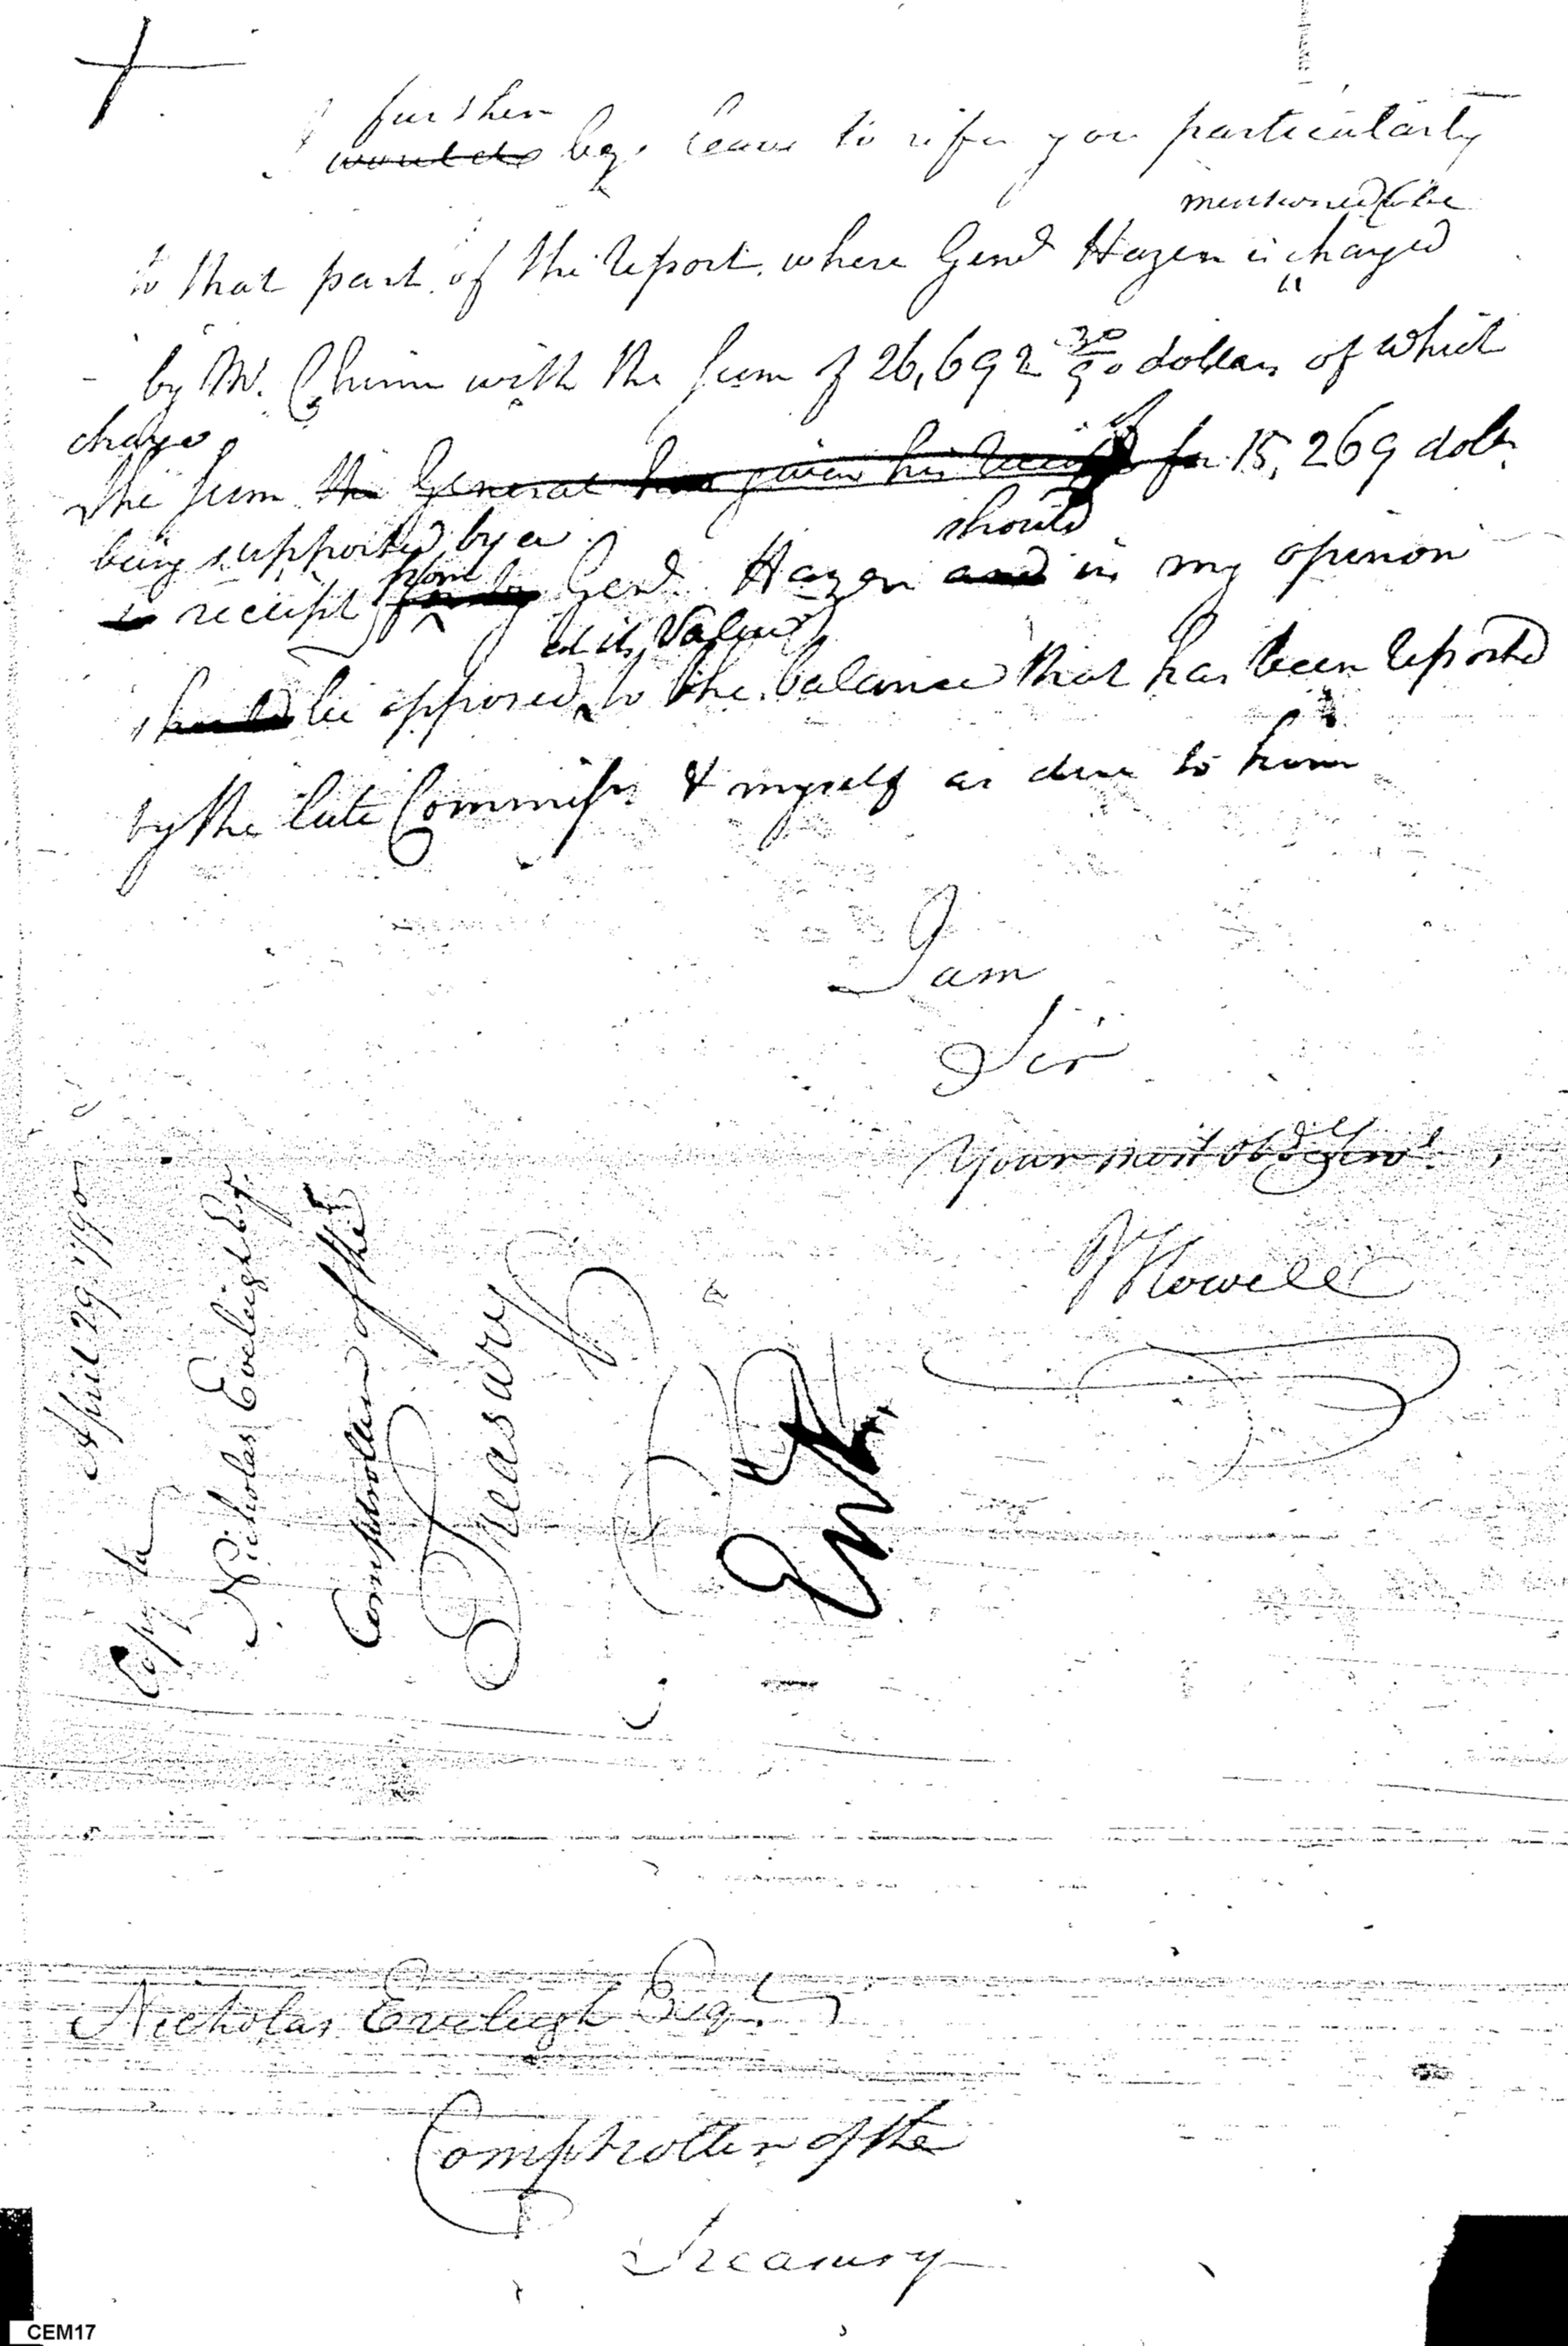 further
I would also beg leave to refer you particularly
mentioned to be
to that part of the report where Genl Hazen is charged
by Mr. Chinn with the sum of 26,692 30/90 dollars of which
charge
the sum the General has given his receipt for of 15,269 dolls
being supported by a
receipt from Genl Hazen and in my opinion
should
at its Value
should be opposed to the balance that has been reported
by the late Commissr & myself as due to him
I am
Sir
Your most obd Servt
Howell
Copy to
April 29 1790
Nicholas Eveleigh Esq.
Comptroller of the
Treasury
Entd
Nicholas Eveleigh Esqr
Comptroller of the
Treasury
CEM17